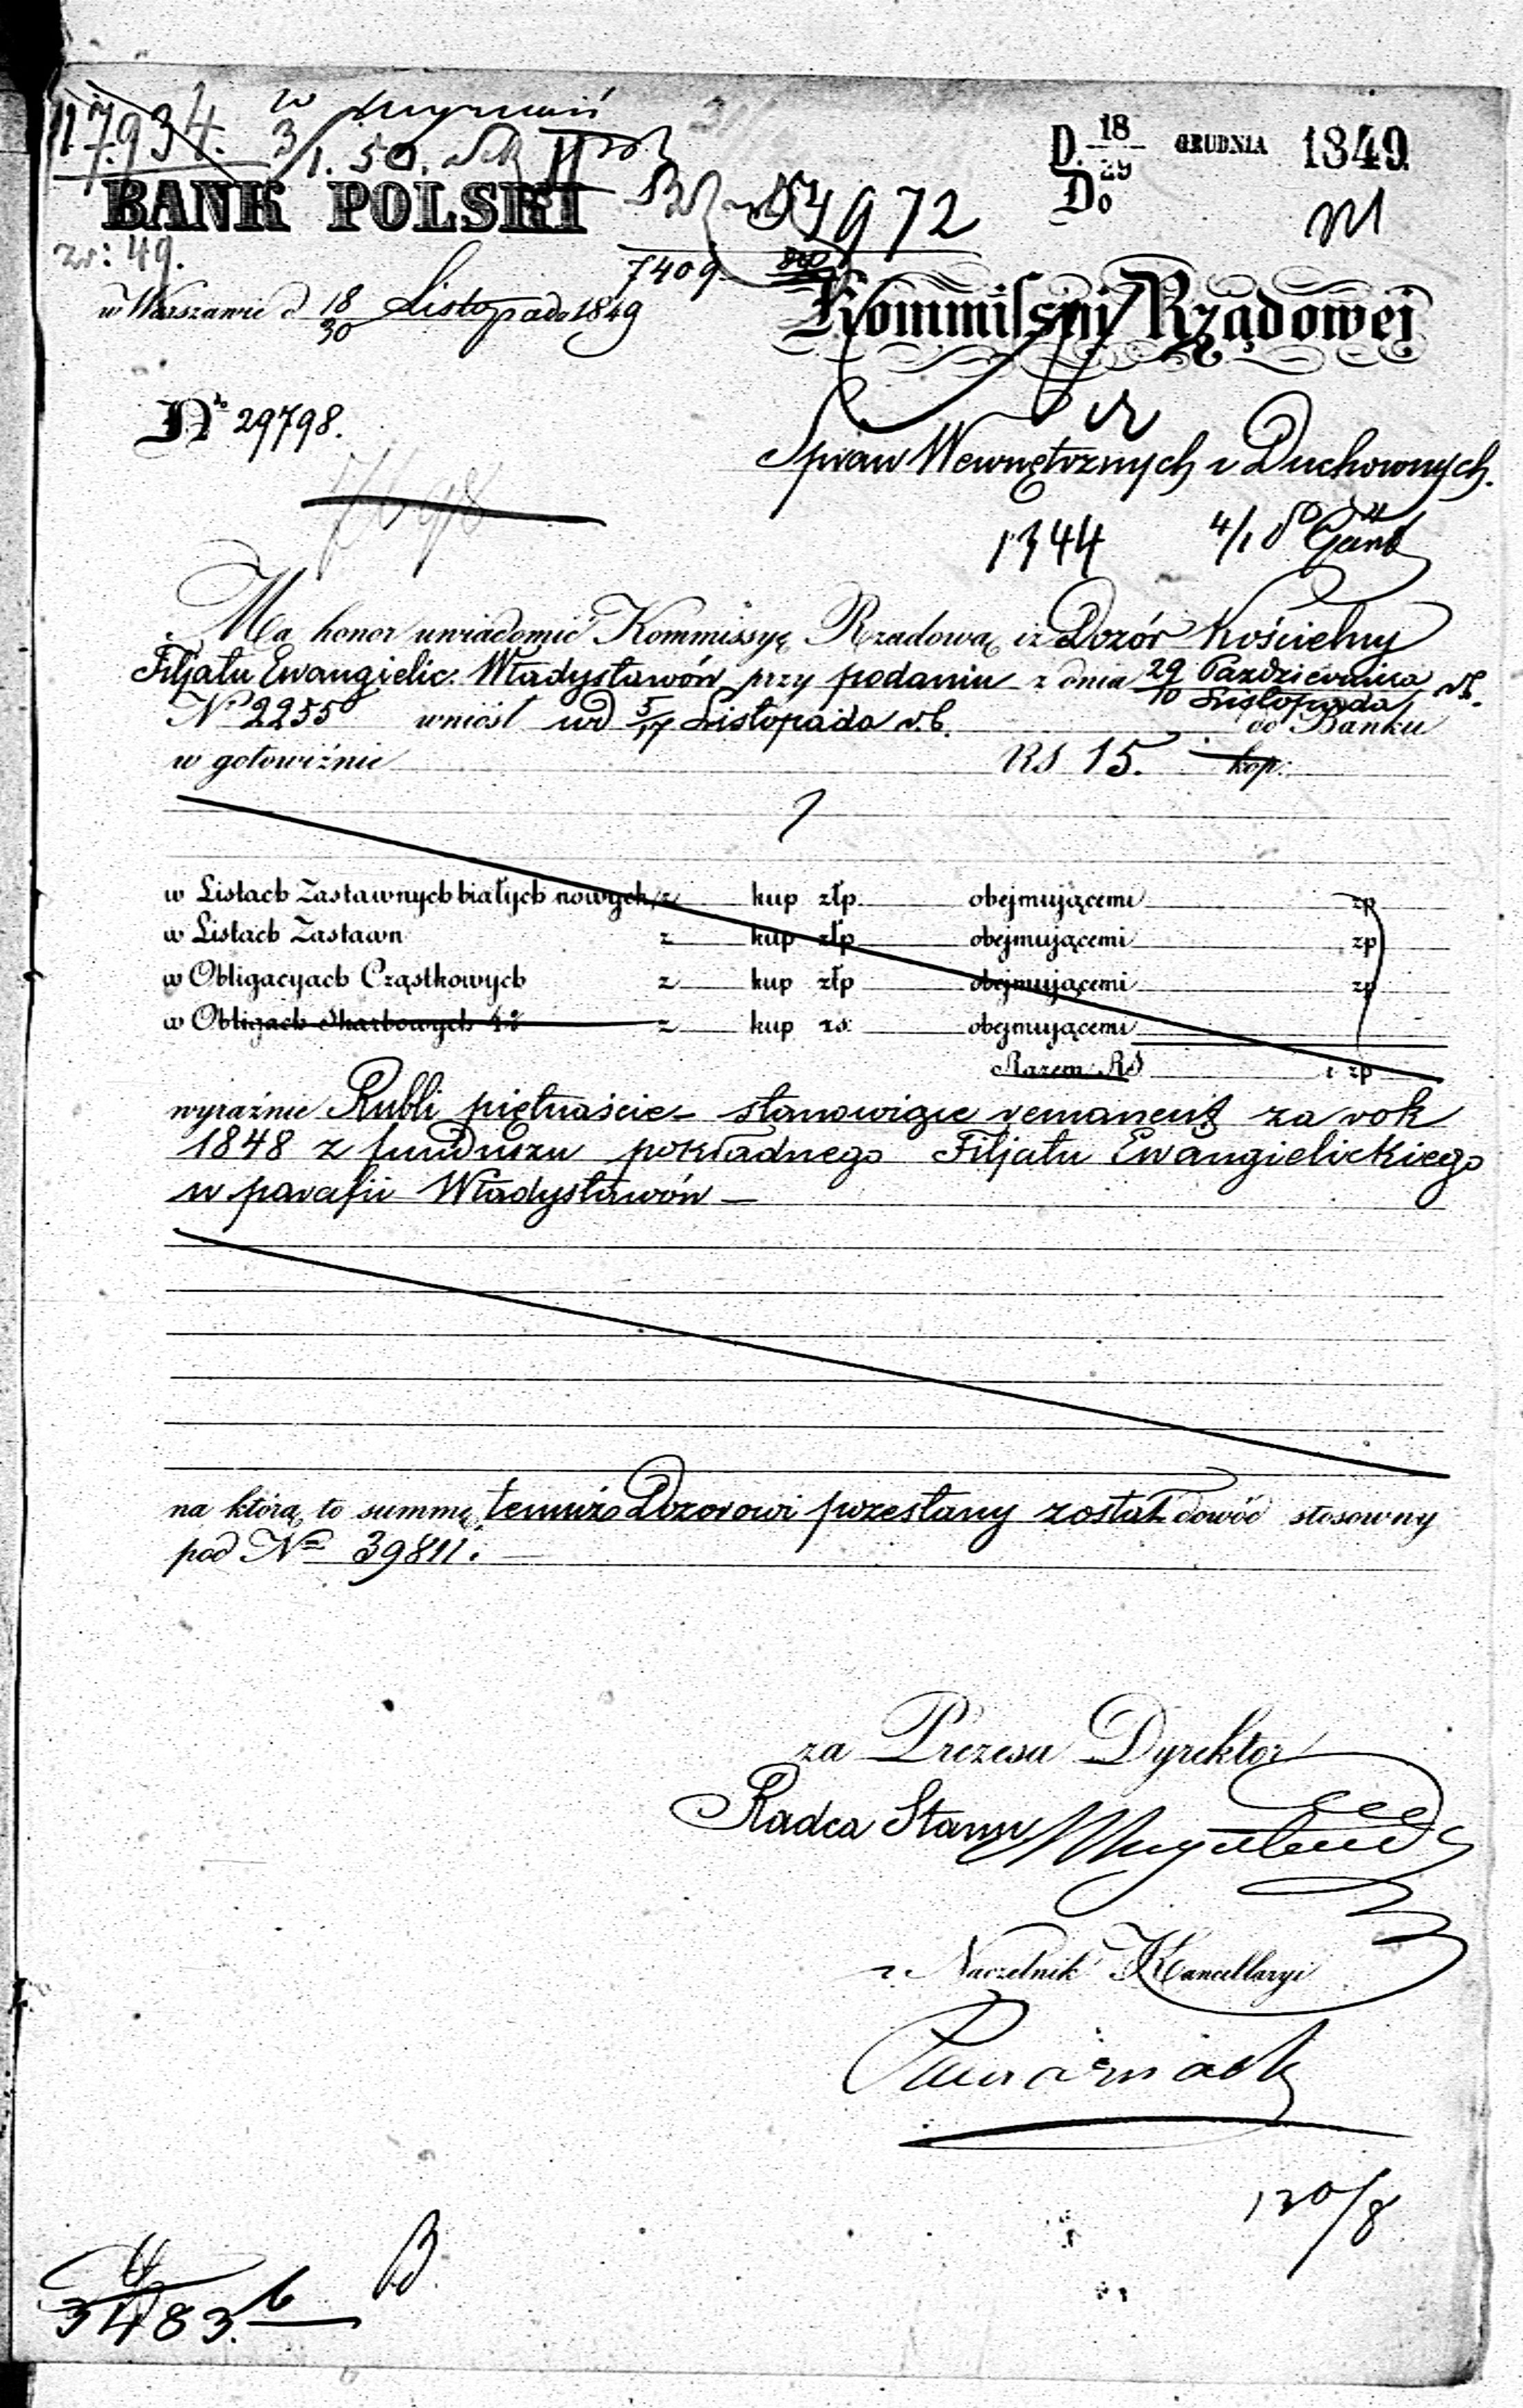 17934.
3/1. 50.
D. 18/29 GRUDNIA 1849.
Do
BANK POLSKI
54972
zr: 49.
7409
w Warszawie d 18/30 Listopada 1849
Kommissyi Rządowej
No 29798.
Spraw Wewnętrznych i Duchownych.
1344 4/1 50
Ma honor uwiadomić Kommissyę Rządową iż Dozór Kościelny
Filjału Ewangielic: Władysławów przy podaniu z dnia 29 Października/10 Listopada r.b.
No 2255 wniósł ud 5/17 Listopada r.b. do Banku
w gotowiźnie RS 15. kop:
w Listach Zastawnych białych nowych z kup złp obejmującemi zp
w Listach Zastawn z kup złp obejmującemi zp
w Obligacyach Cząstkowych z kup złp obejmującemi zp
w Obligach Skarbowych 4% z kup rs: obejmującemi
Razem RS i zp
wyraźnie Rubli piętnaście - stanowiące remanent za rok
1848 z funduszu pokładnego Filjału Ewangielickiego
w parafii Władysławów —
na którą to summę temuż Dozorowi przesłany został dowód stosowny
pod No 39811. —
za Prezesa Dyrektor
Radca Stanu
Naczelnik Kancellaryi
120/8
B.
3483. 6